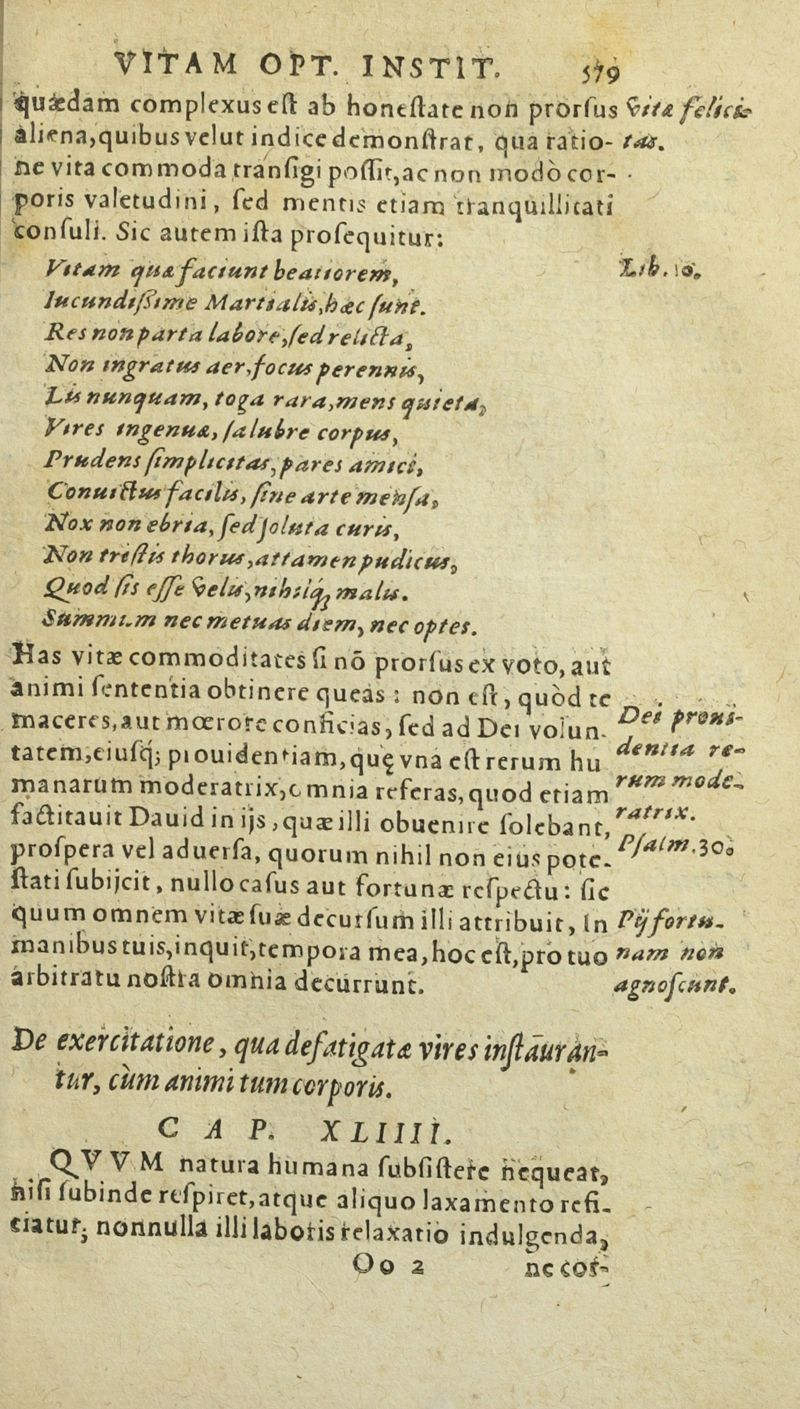 VITAM OPT. INSTIT. 579
quædam complexus eſt ab honeſtate non prorſus
vitæ felici-
aliena, quibus velut indice demonſtrat, qua ratio-
tas.
ne vita commoda tranſigi poſſit, ac non modò cor-
poris valetudini, ſed mentis etiam tranquillitati
conſuli. Sic autem iſta proſequitur:
Vitam quæ faciunt beatiorem,
Lib. 10.
Iucundiſſime Martialis, hæc ſunt.
Res non parta labore, ſed relicta,
Non ingratus aer, focus perennis,
Lis nunquam, toga rara, mens quieta,
Vires ingenuæ, ſalubre corpus,
Prudens ſimplicitas, pares amici,
Conuictus facilis, ſine arte menſa,
Nox non ebria, ſed ſoluta curis,
Non triſtis thorus, attamen pudicus,
Quod ſis eſſe velis, nihilq; malis.
Summum nec metuas diem, nec optes.
Has vitæ commoditates ſi nō prorſus ex voto, aut
animi ſententia obtinere queas: non eſt, quòd te
maceres, aut mœrore conficias, ſed ad Dei volun-
Dei proui-
tatem, eiuſq; prouidentiam, quę vna eſt rerum hu
dentia re-
manarum moderatrix, omnia referas, quod etiam
rum mode-
factitauit Dauid in ijs, quæ illi obuenire ſolebant,
ratrix.
proſpera vel aduerſa, quorum nihil non eius pote-
Pſalm. 30.
ſtati ſubijcit, nullo caſus aut fortunæ reſpectu: ſic
quum omnem vitæ ſuæ decurſum illi attribuit, In
Pij fortu-
manibus tuis, inquit, tempora mea, hoc eſt, pro tuo
nam non
arbitratu noſtra omnia decurrunt.
agnoſcunt.
De exercitatione, qua defatigatæ vires inſtauran-
tur, cùm animi tum corporis.
CAP. XLIIII.
QVVM natura humana ſubſiſtere nequeat,
niſi ſubinde reſpiret, atque aliquo laxamento refi-
ciatur, nonnulla illi laboris relaxatio indulgenda,
Oo 2 ne cor-